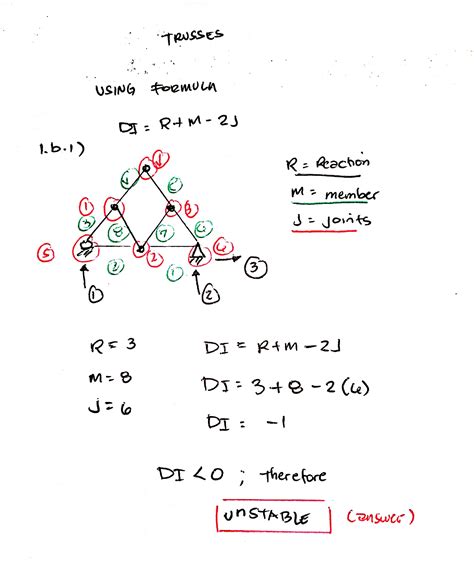 TRUSSES
USING FORMULA
DI = R + M - 2J
1.b.1)
R = Reaction
M = member
J = joints
1
2
3
8
7
2
5
2
1
3
1
2
R = 3
DI = R + M - 2J
M = 8
DI = 3 + 8 - 2(6)
J = 6
DI = -1
DI < 0 ; therefore
UNSTABLE
(answer)